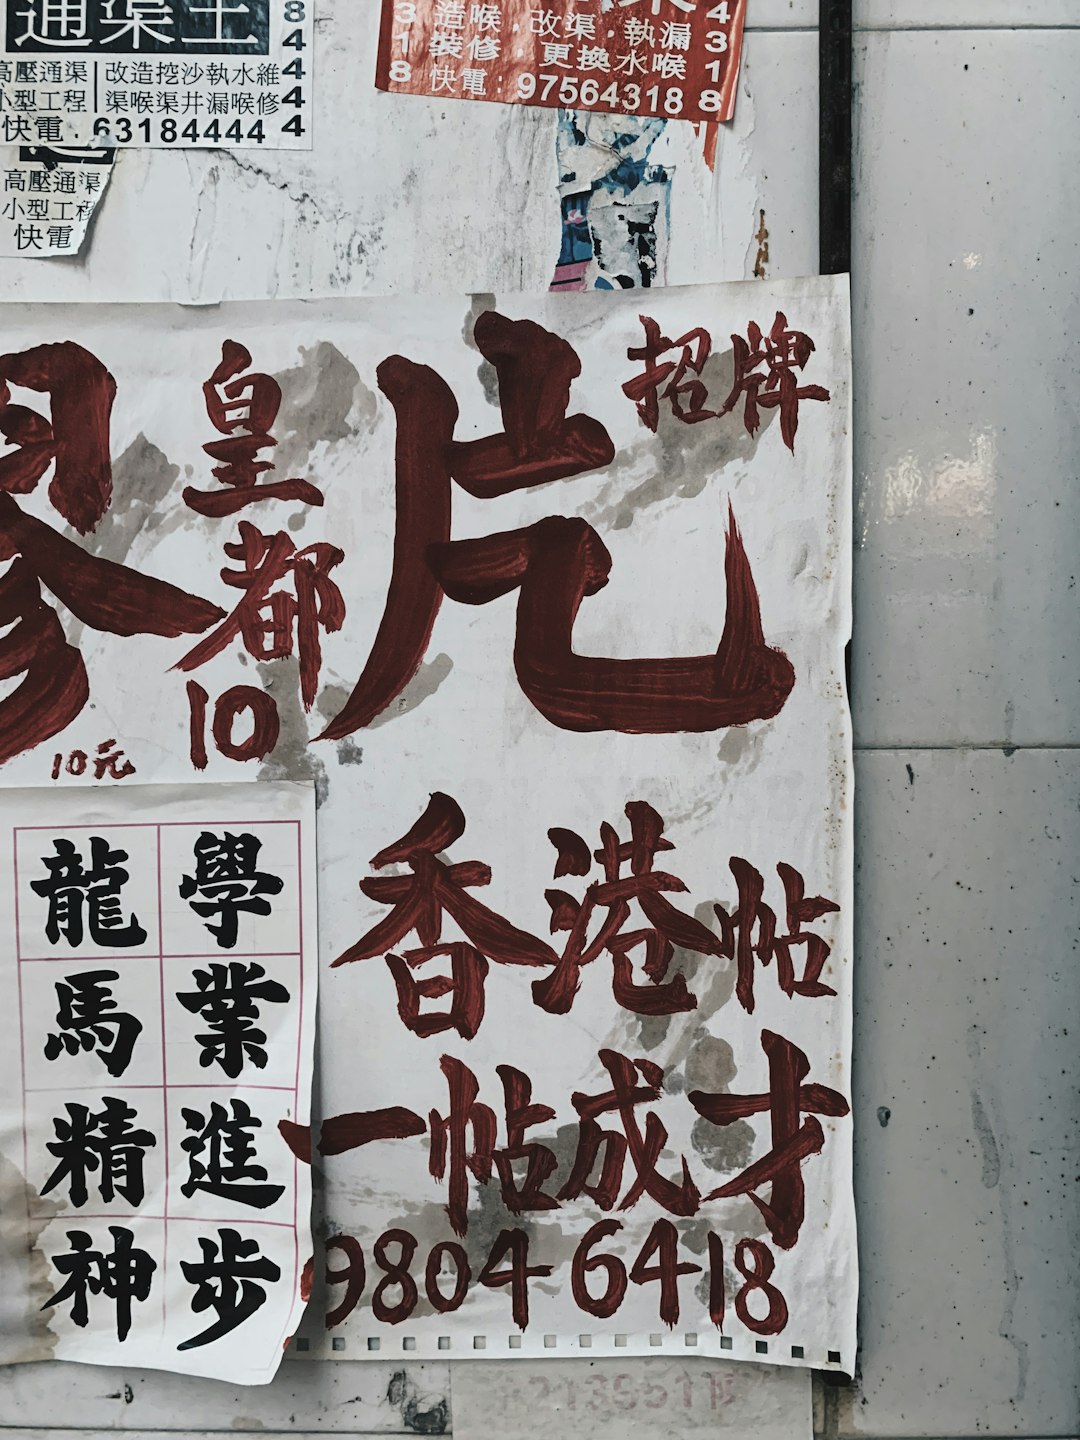 通渠王
高壓通渠 改造挖沙執水維
小型工程 渠喉渠井漏喉修
快電：63184444
8
4
4
4
4
高壓通渠
小型工程
快電
造喉·改渠·執漏
裝修·更換水喉
快電：97564318
3
1
8
4
3
1
8
招牌
皇都
10
10元
香港帖
一帖成才
9804 6418
龍 學
馬 業
精 進
神 步